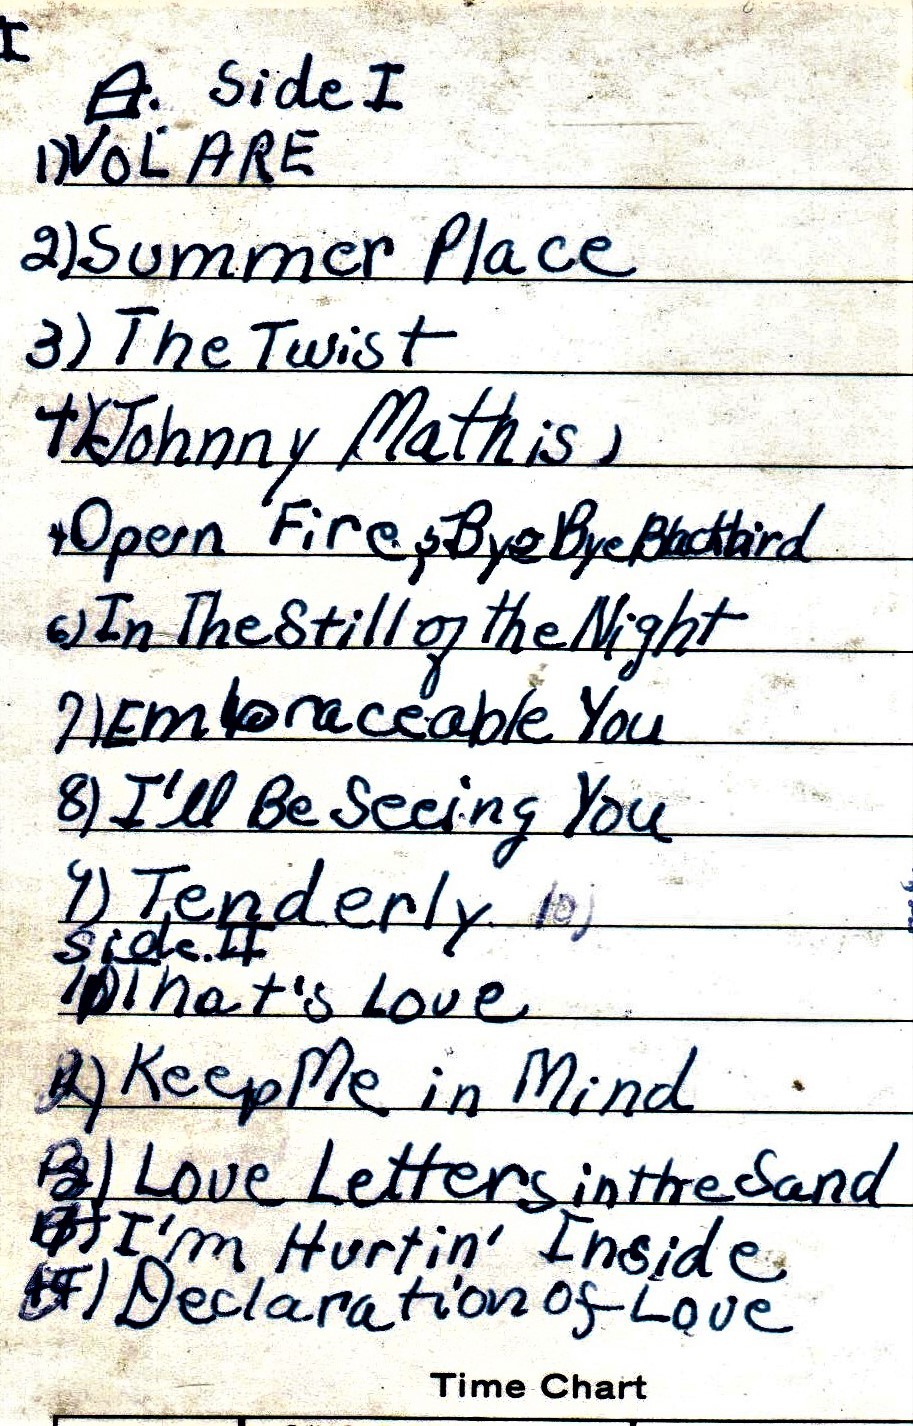 I
A. Side I
1) VOLARE
2) Summer Place
3) The Twist
4) (Johnny Mathis)
Open Fire, 5) Bye Bye Blackbird
6) In The Still of the Night
7) Embraceable You
8) I'll Be Seeing You
9) Tenderly 10)
Side II
That's Love
Keep Me in Mind
Love Letters in the Sand
I'm Hurtin' Inside
Declaration of Love
Time Chart